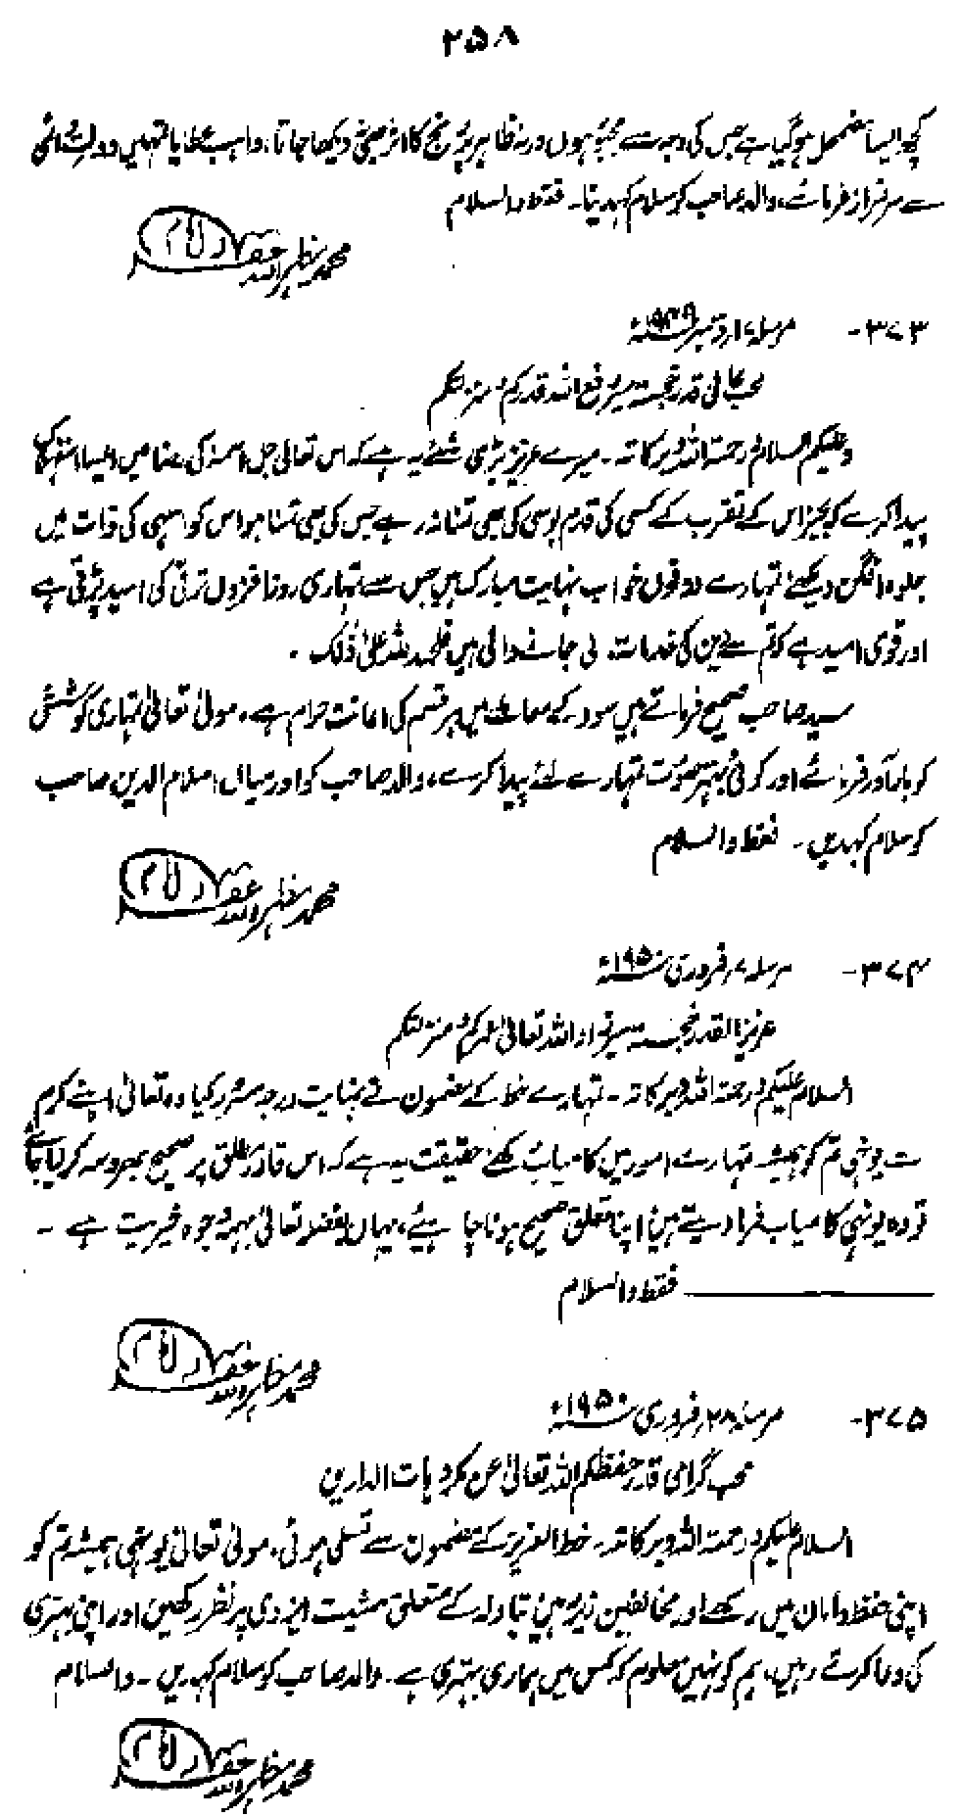 ۲۵۸
کچھ ایسا مضمحل ہوگیا ہے جس کی وجہ سے مجبور ہوں ورنہ ظاہر پر نچ کا اثر دیکھا جاتا، واہب عطایا تمہیں دولتِ
سے سرفراز فرمائے، والد صاحب کو سلام کہدینا۔ فقط والسلام
محمد مظہر اللہ غفرلہٗ
۳۷۳- مرسلہ ۱۷ دسمبر ۱۹۴۹ء
محب عالی قدر خجستہ سیر رفع اللہ قدرکم و منزلتکم
وعلیکم السلام و رحمۃ اللہ وبرکاتہ۔ میرے عزیز بڑی شئے یہ ہے کہ اس تعالیٰ جل اسمہٗ کی رضا میں ایسا استہلاک
پیدا کرے کہ بجز اس کے تقرب کے کسی کی قدم بوسی کی بھی تمنا نہ رہے جس کی بھی تمنا ہو اس کو اسہی کی ذات میں
جلوہ افگن دیکھے تمہارے دونوں خواب نہایت مبارک ہیں جس سے تمہاری روز افزوں ترقی کی امید پڑتی ہے
اور قوی امید ہے کہ تم سے دین کی خدمات لی جانے والی ہیں فالحمد للہ علیٰ ذٰلک ۔
سید صاحب صحیح فرماتے ہیں سود کے معاملہ میں ہر قسم کی اعانت حرام ہے، مولیٰ تعالیٰ تمہاری کوشش
کو بارآور فرمائے اور کوئی بہتر صورت تمہارے لئے پیدا کرے، والد صاحب کو اور میاں اسلام الدین صاحب
کو سلام کہدیں ۔ فقط والسلام
محمد مظہر اللہ غفرلہٗ
۳۷۴- مرسلہ ۷ فروری ۱۹۵۰ء
عزیز القدر خجستہ سیر زاد اللہ تعالیٰ عمرکم و منزلتکم
السلام علیکم و رحمۃ اللہ وبرکاتہ۔ تمہارے خط کے مضمون نے نہایت درجہ مسرور کیا وہ تعالیٰ اپنے کرم
سے یونہی تم کو ہمیشہ تمہارے امور میں کامیاب رکھے حقیقت یہ ہے کہ اس قادر مطلق پر صحیح بھروسہ کرلیا جائے
تو وہ یونہی کامیاب فرما دیتے ہیں اپنا تعلق صحیح ہونا چاہیئے، یہاں بفضلہ تعالیٰ بہمہ وجوہ خیریت ہے ۔
فقط والسلام
محمد مظہر اللہ غفرلہٗ
۳۷۵- مرسلہ ۲۸ فروری ۱۹۵۰ء
محب گرامی قدر حفظکم اللہ تعالیٰ عن مکروہات الدارین
السلام علیکم و رحمۃ اللہ وبرکاتہ۔ خط العزیز کے مضمون سے تسلی ہوئی، مولیٰ تعالیٰ یونہی ہمیشہ تم کو
اپنی حفظ و امان میں رکھے اور مخالفین زیر رہیں، تبادلہ کے متعلق مشیت ایزدی پر نظر رکھیں اور اپنی بہتری
کی دعا کرتے رہیں، ہم کو نہیں معلوم کہ کس میں ہماری بہتری ہے۔ والد صاحب کو سلام کہدیں۔ والسلام
محمد مظہر اللہ غفرلہٗ